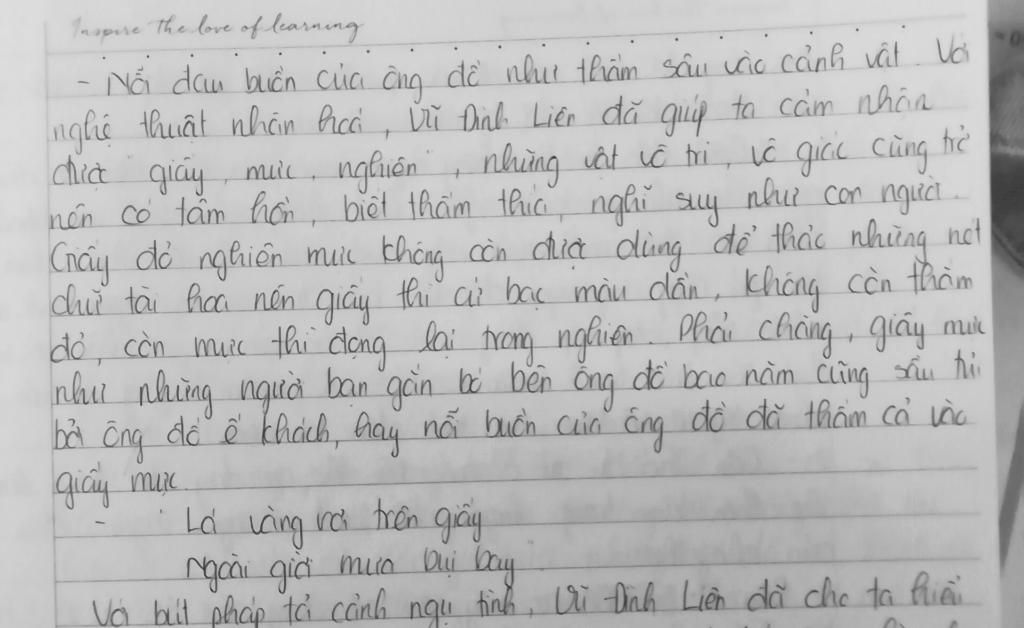 Inspire The love of learning
- Nỗi đau buồn của ông đồ như thấm sâu vào cảnh vật. Với
nghệ thuật nhân hoá, Vũ Đình Liên đã giúp ta cảm nhận
được giấy, mực, nghiên, những vật vô tri, vô giác cũng trở
nên có tâm hồn, biết thấm thía, nghĩ suy như con người.
Giấy đỏ nghiên mực không còn được dùng để thảo những nét
chữ tài hoa nên giấy thì cứ bạc màu dần, không còn thắm
đỏ, còn mực thì đọng lại trong nghiên. Phải chăng, giấy mực
như những người bạn gắn bó bên ông đồ bao năm cũng sầu tủi
bởi ông đồ ế khách, hay nỗi buồn của ông đồ đã thấm cả vào
giấy mực.
- Lá vàng rơi trên giấy
Ngoài giời mưa bụi bay
Với bút pháp tả cảnh ngụ tình, Vũ Đình Liên đã cho ta hiểu